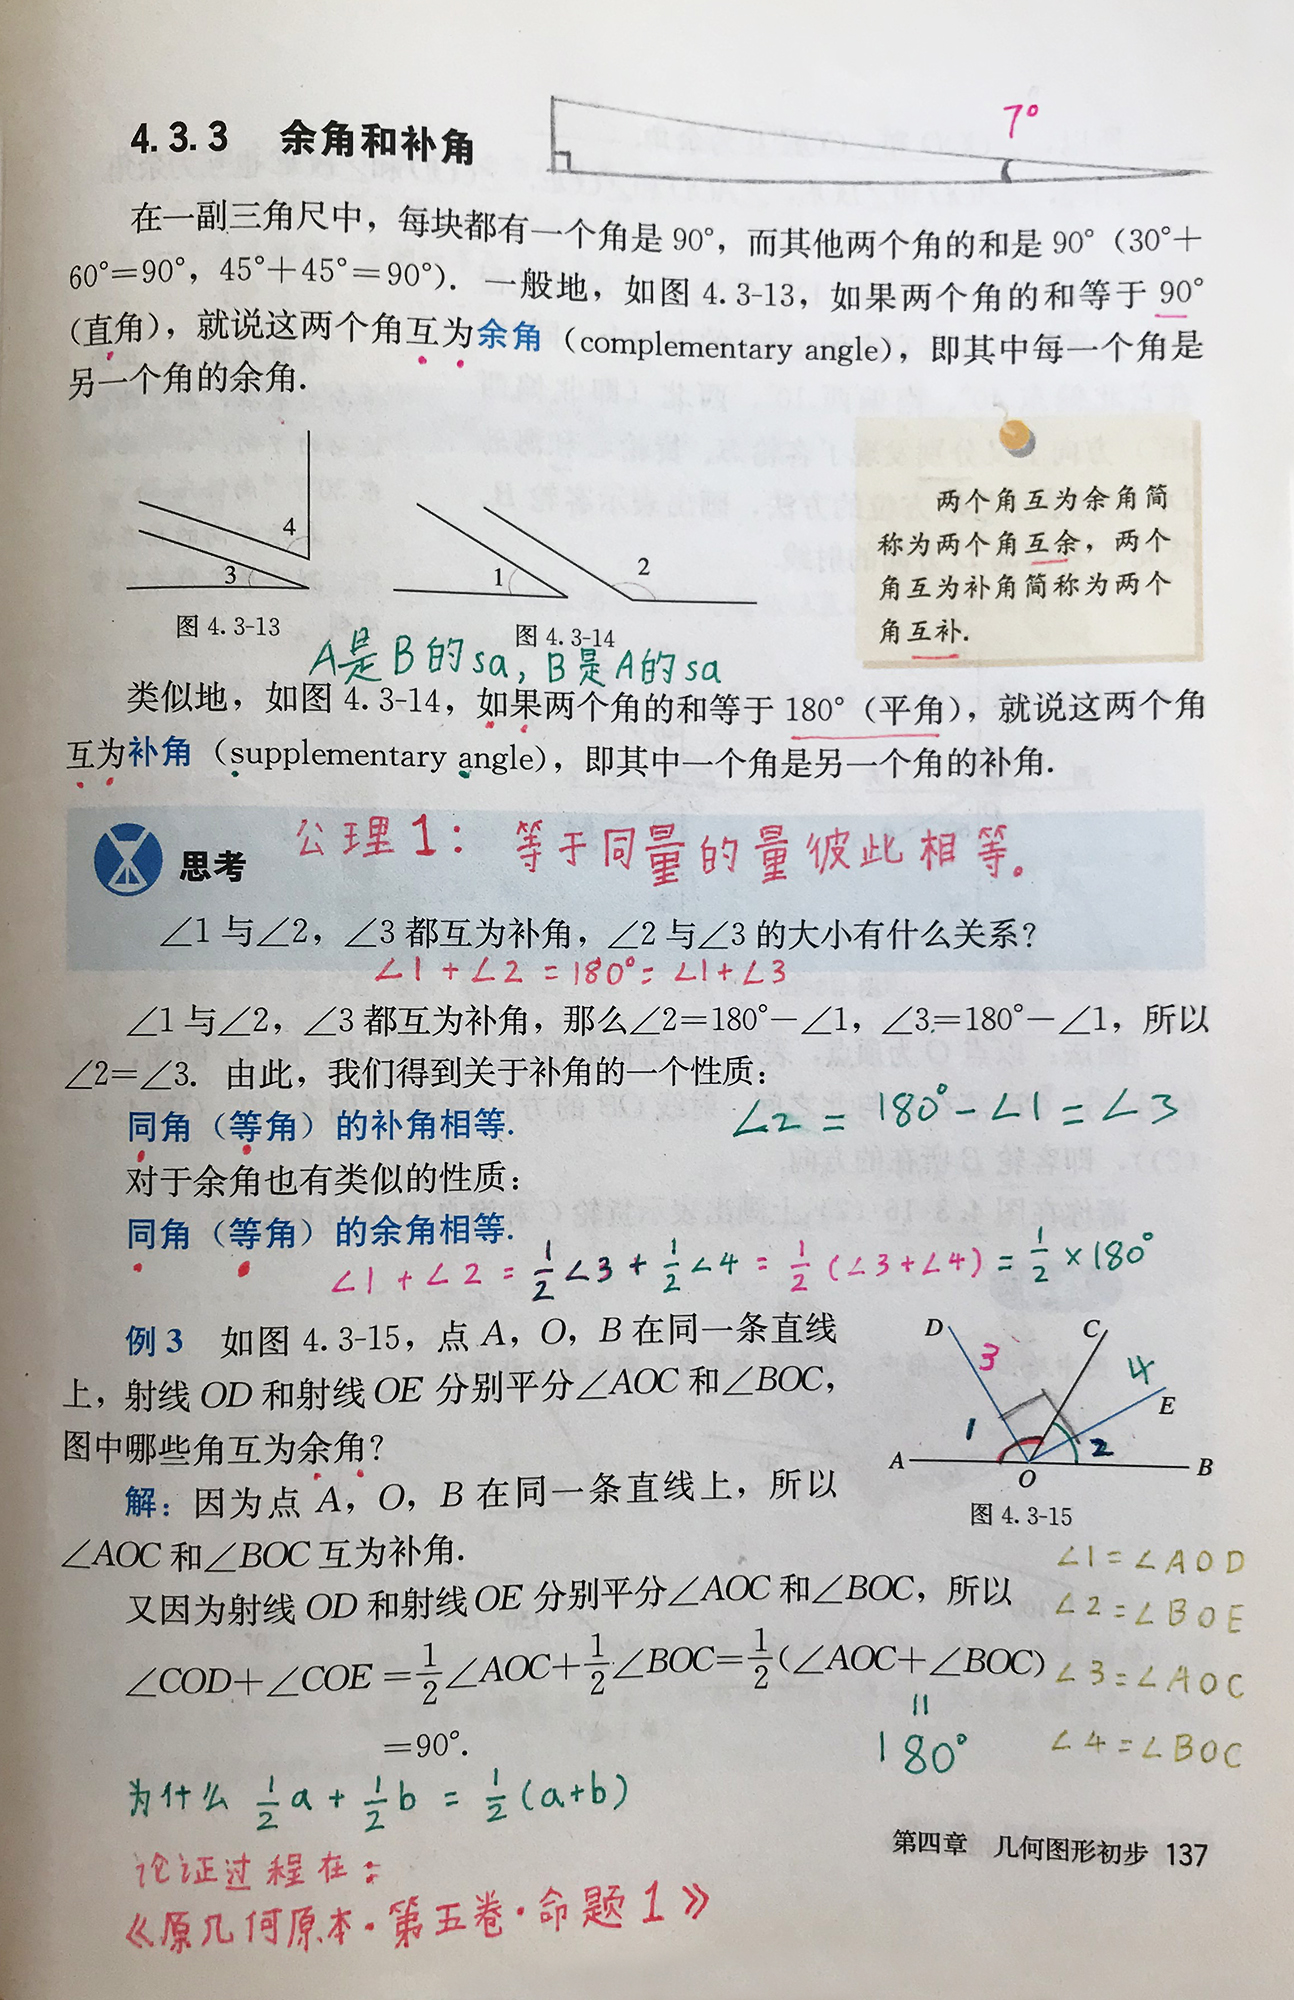 7°
4.3.3 余角和补角
在一副三角尺中，每块都有一个角是 90°，而其他两个角的和是 90°（30°＋
60°＝90°，45°＋45°＝90°）. 一般地，如图 4.3-13，如果两个角的和等于 90°
（直角），就说这两个角互为余角（complementary angle），即其中每一个角是
另一个角的余角.
4
3
图 4.3-13
1
2
图 4.3-14
两个角互为余角简
称为两个角互余，两个
角互为补角简称为两个
角互补.
A是B的sa, B是A的sa
类似地，如图 4.3-14，如果两个角的和等于 180°（平角），就说这两个角
互为补角（supplementary angle），即其中一个角是另一个角的补角.
公理1: 等于同量的量彼此相等。
思考
∠1 与∠2，∠3 都互为补角，∠2 与∠3 的大小有什么关系？
∠1+∠2=180°=∠1+∠3
∠1 与∠2，∠3 都互为补角，那么∠2＝180°－∠1，∠3＝180°－∠1，所以
∠2＝∠3. 由此，我们得到关于补角的一个性质：
同角（等角）的补角相等.
∠2=180°-∠1=∠3
对于余角也有类似的性质：
同角（等角）的余角相等.
∠1+∠2=1/2∠3+1/2∠4=1/2(∠3+∠4)=1/2×180°
例 3 如图 4.3-15，点 A，O，B 在同一条直线
上，射线 OD 和射线 OE 分别平分∠AOC 和∠BOC，
图中哪些角互为余角？
D
C
3
4
E
1
2
A
O
B
图 4.3-15
解：因为点 A，O，B 在同一条直线上，所以
∠AOC 和∠BOC 互为补角.
又因为射线 OD 和射线 OE 分别平分∠AOC 和∠BOC，所以
∠COD＋∠COE＝1/2∠AOC＋1/2∠BOC＝1/2(∠AOC＋∠BOC)
＝90°.
=
180°
∠1=∠AOD
∠2=∠BOE
∠3=∠AOC
∠4=∠BOC
为什么 1/2a+1/2b=1/2(a+b)
论证过程在:
《原几何原本·第五卷·命题1》
第四章 几何图形初步 137